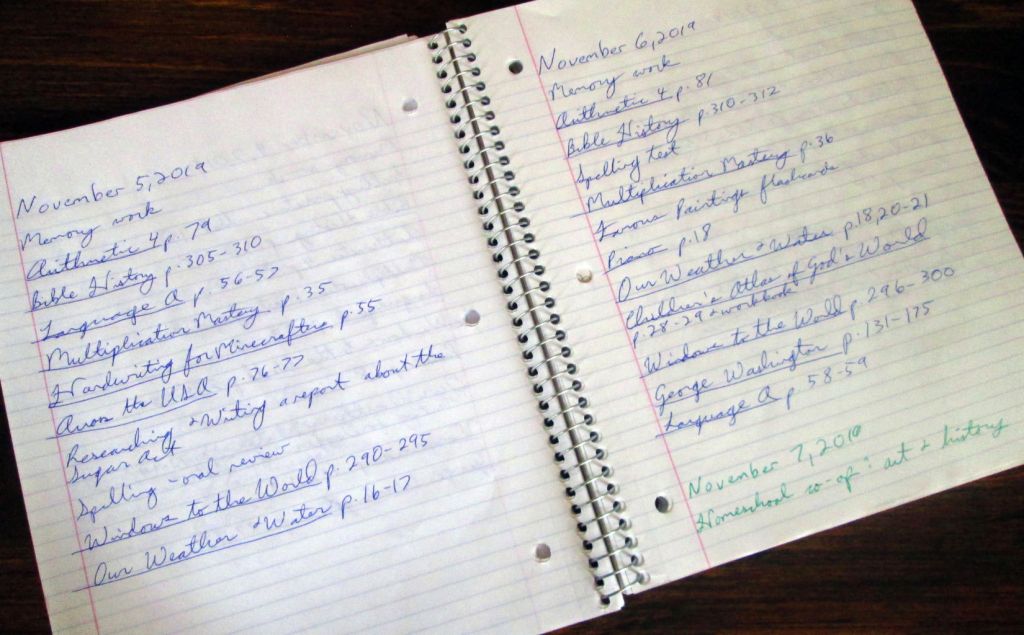 November 5, 2019
Memory work
Arithmetic 4 p. 79
Bible History p. 305-310
Language A p. 56-57
Multiplication Mastery p. 35
Handwriting for Minecrafters p. 55
Across the USA p. 76-77
Researching & Writing a report about the
Sugar Act
Spelling - oral review
Windows to the World p. 290-295
Our Weather & Water p. 16-17
November 6, 2019
Memory work
Arithmetic 4 p. 81
Bible History p. 310-312
Spelling test
Multiplication Mastery p. 36
Famous Paintings flashcards
Piano p. 18
Our Weather & Water p. 18, 20-21
Children's Atlas of God's World
p. 28-29 & workbook
Windows to the World p. 296-300
George Washington p. 131-175
Language A p 58-59
November 7, 2019
Homeschool co-op: art & history